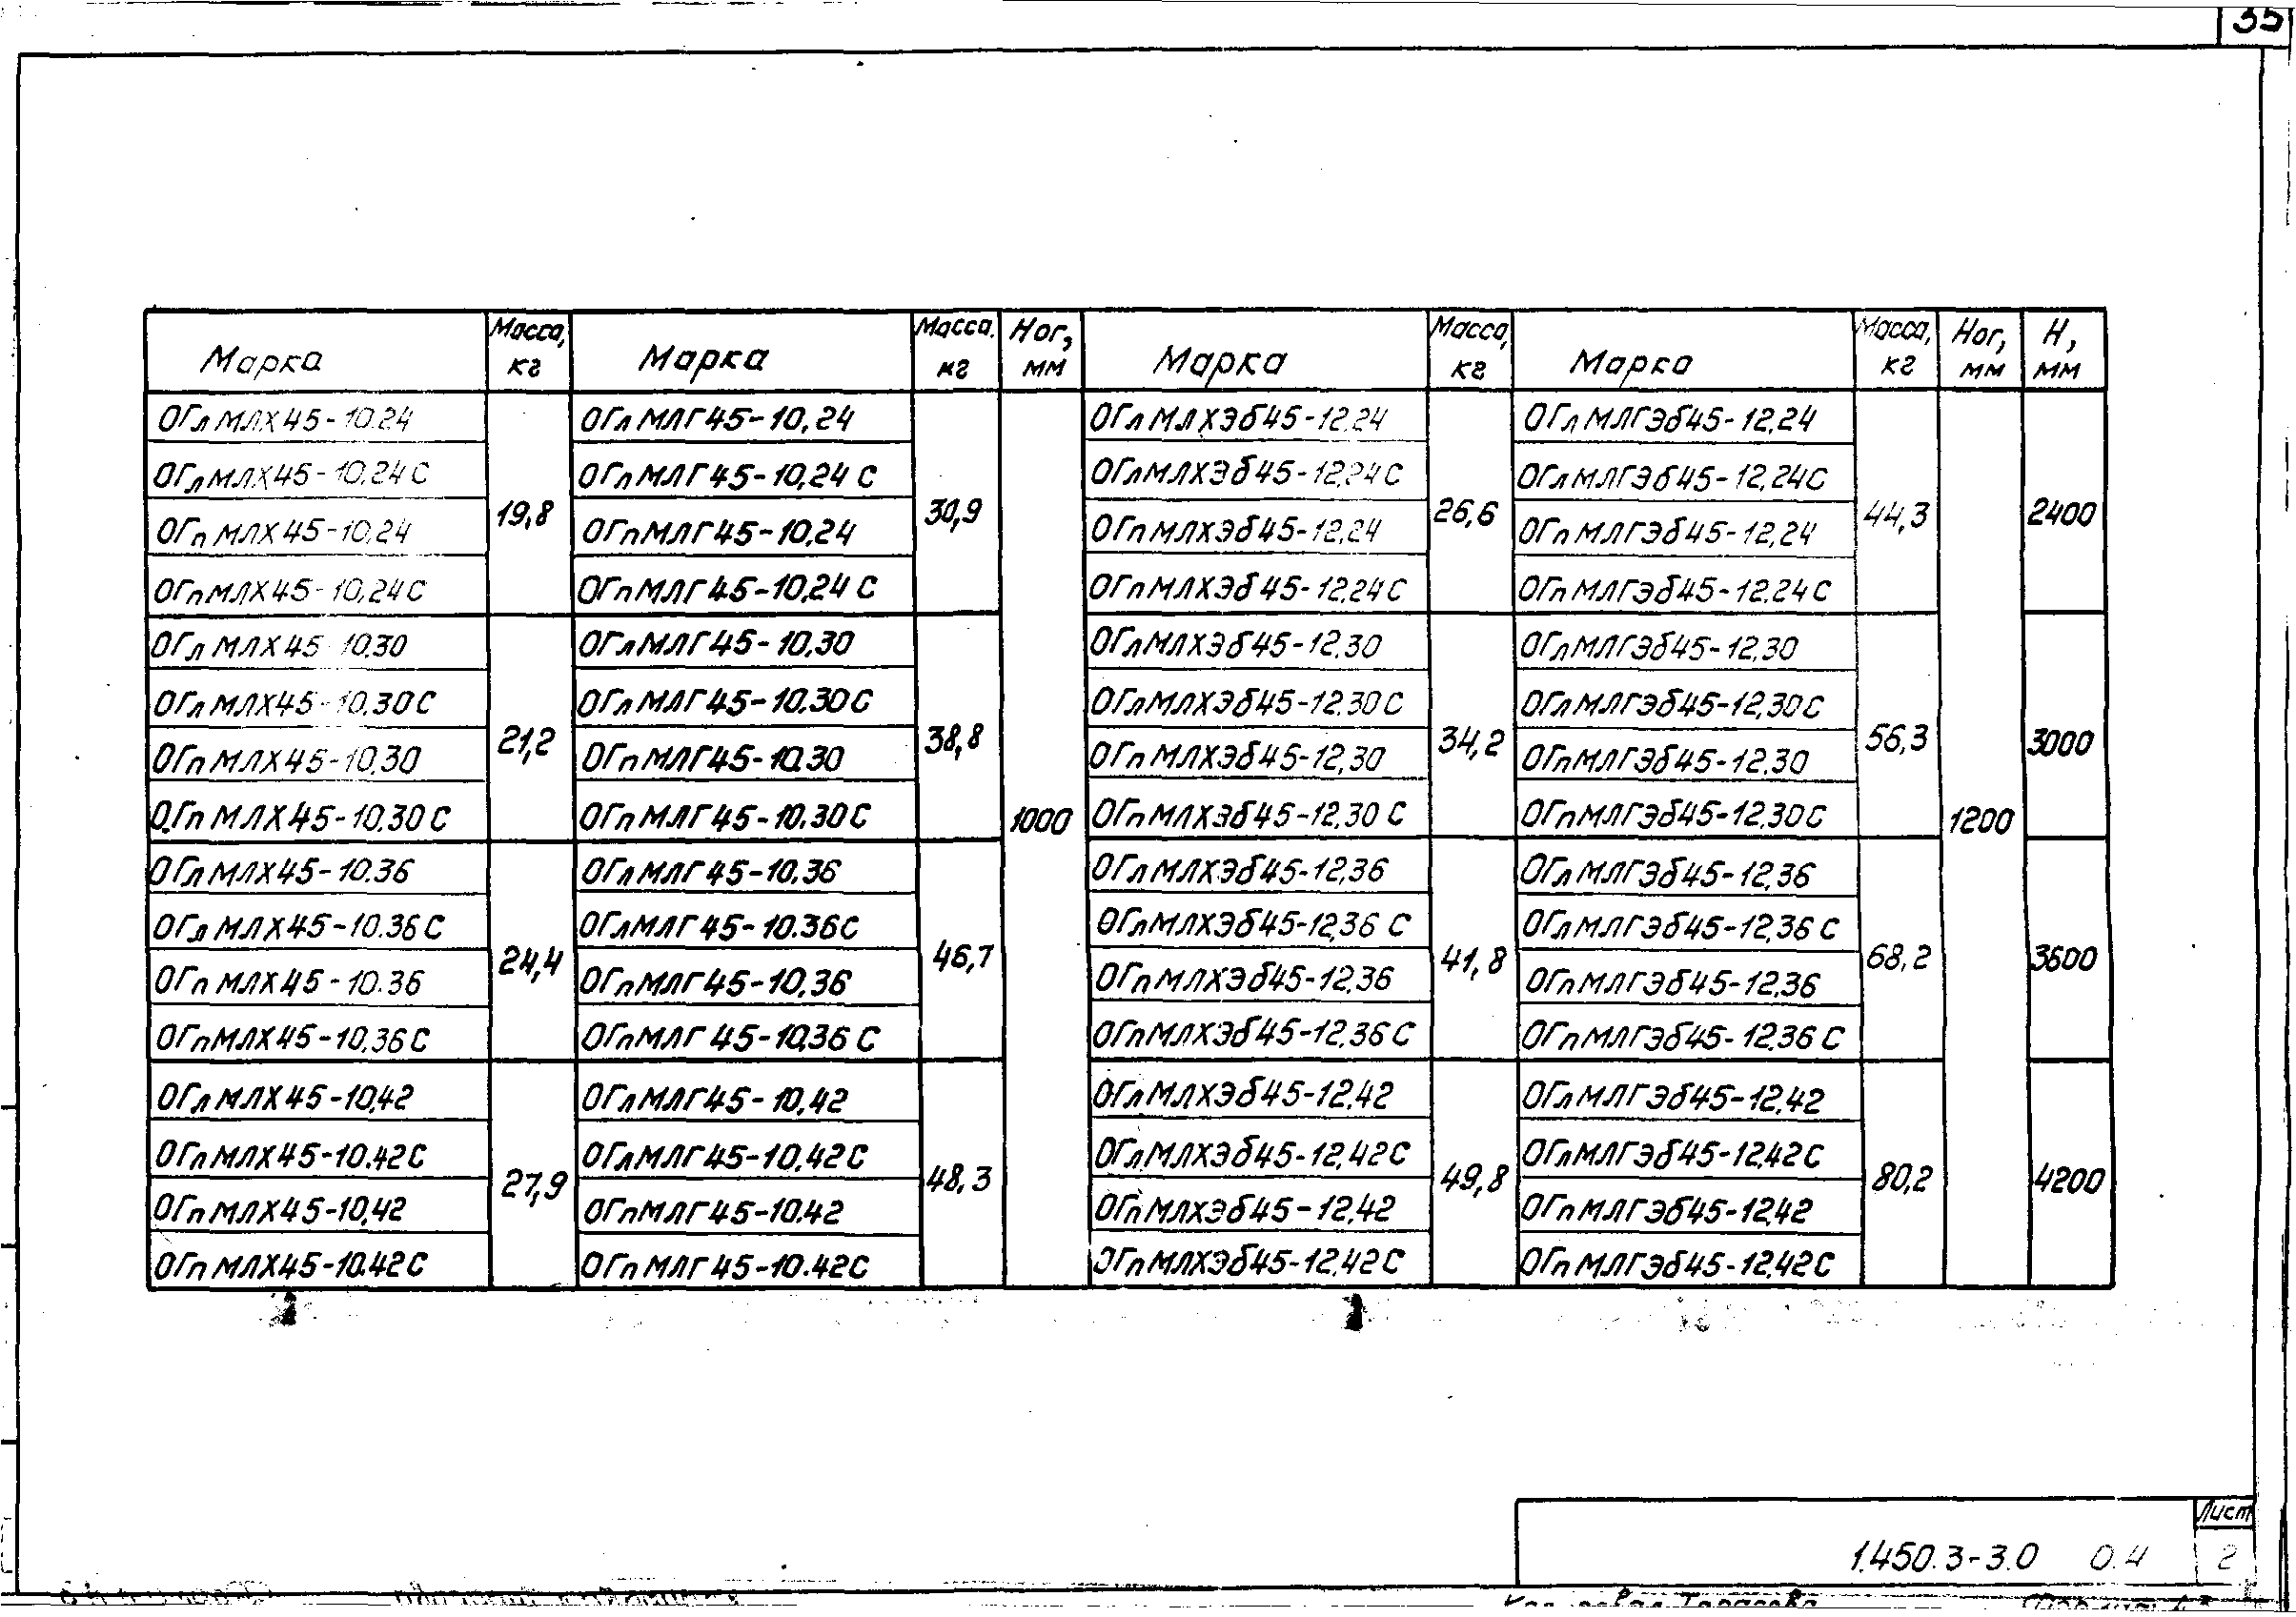 35
Марка | Масса, кг | Марка | Масса. кг | Ног, мм | Марка | Масса, кг | Марка | Масса, кг | Ног, мм | Н, мм
ОГлМЛХ45-10.24 | 19,8 | ОГлМЛГ45-10,24 | 30,9 | 1000 | ОГлМЛХЭб45-12.24 | 26,6 | ОГлМЛГЭб45-12,24 | 44,3 | 1200 | 2400
ОГлМЛХ45-10,24С | ОГлМЛГ45-10,24С | ОГлМЛХЭб45-12,24С | ОГлМЛГЭб45-12,24С
ОГпМЛХ45-10,24 | ОГпМЛГ45-10,24 | ОГпМЛХЭб45-12,24 | ОГпМЛГЭб45-12,24
ОГпМЛХ45-10,24С | ОГпМЛГ45-10,24С | ОГпМЛХЭб45-12.24С | ОГпМЛГЭб45-12.24С
ОГлМЛХ45-10.30 | 21,2 | ОГлМЛГ45-10,30 | 38,8 | ОГлМЛХЭб45-12.30 | 34,2 | ОГлМЛГЭб45-12,30 | 56,3 | 3000
ОГлМЛХ45-10.30С | ОГлМЛГ45-10.30С | ОГлМЛХЭб45-12.30С | ОГлМЛГЭб45-12,30С
ОГпМЛХ45-10,30 | ОГпМЛГ45-10.30 | ОГпМЛХЭб45-12,30 | ОГпМЛГЭб45-12.30
ОГпМЛХ45-10.30С | ОГпМЛГ45-10.30С | ОГпМЛХЭб45-12,30С | ОГпМЛГЭб45-12,30С
ОГлМЛХ45-10.36 | 24,4 | ОГлМЛГ45-10,36 | 46,7 | ОГлМЛХЭб45-12,36 | 41,8 | ОГлМЛГЭб45-12,36 | 68,2 | 3600
ОГлМЛХ45-10.36С | ОГлМЛГ45-10.36С | ОГлМЛХЭб45-12,36С | ОГлМЛГЭб45-12,36С
ОГпМЛХ45-10.36 | ОГпМЛГ45-10,36 | ОГпМЛХЭб45-12.36 | ОГпМЛГЭб45-12,36
ОГпМЛХ45-10,36С | ОГпМЛГ45-10,36С | ОГпМЛХЭб45-12.36С | ОГпМЛГЭб45-12.36С
ОГлМЛХ45-10,42 | 27,9 | ОГлМЛГ45-10,42 | 48,3 | ОГлМЛХЭб45-12,42 | 49,8 | ОГлМЛГЭб45-12,42 | 80,2 | 4200
ОГпМЛХ45-10.42С | ОГлМЛГ45-10,42С | ОГлМЛХЭб45-12,42С | ОГлМЛГЭб45-12,42С
ОГпМЛХ45-10,42 | ОГпМЛГ45-10.42 | ОГпМЛХЭб45-12,42 | ОГпМЛГЭб45-12,42
ОГпМЛХ45-10.42С | ОГпМЛГ45-10.42С | ОГпМЛХЭб45-12,42С | ОГпМЛГЭб45-12,42С
Лист
1.450.3-3.0 0.4 2